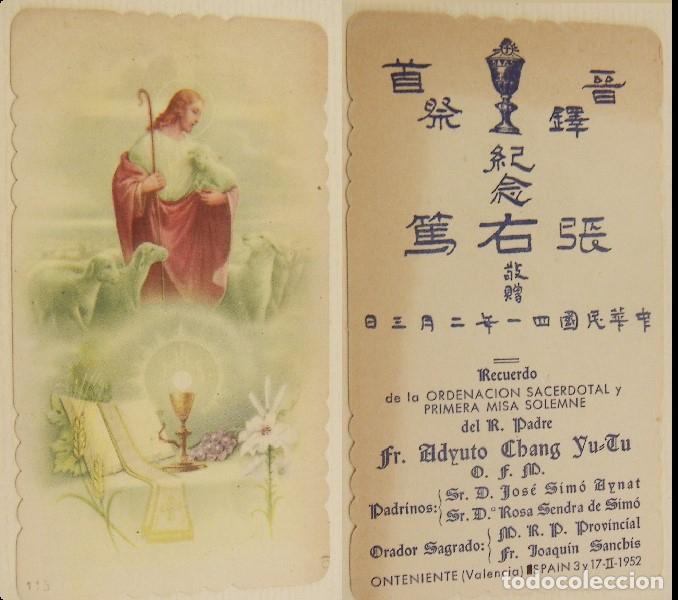 晉鐸
首祭
紀念
張右篤
敬贈
中華民國四一年二月三日
Recuerdo
de la ORDENACION SACERDOTAL y
PRIMERA MISA SOLEMNE
del R. Padre
Fr. Adyuto Chang Yu-Tu
O. F. M.
Padrinos: Sr. D. José Simó Aynat
Sr. D.ª Rosa Sendra de Simó
Orador Sagrado: M. R. P. Provincial
Fr. Joaquín Sanchis
ONTENIENTE (Valencia) SPAIN 3 y 17-II-1952
todocoleccion